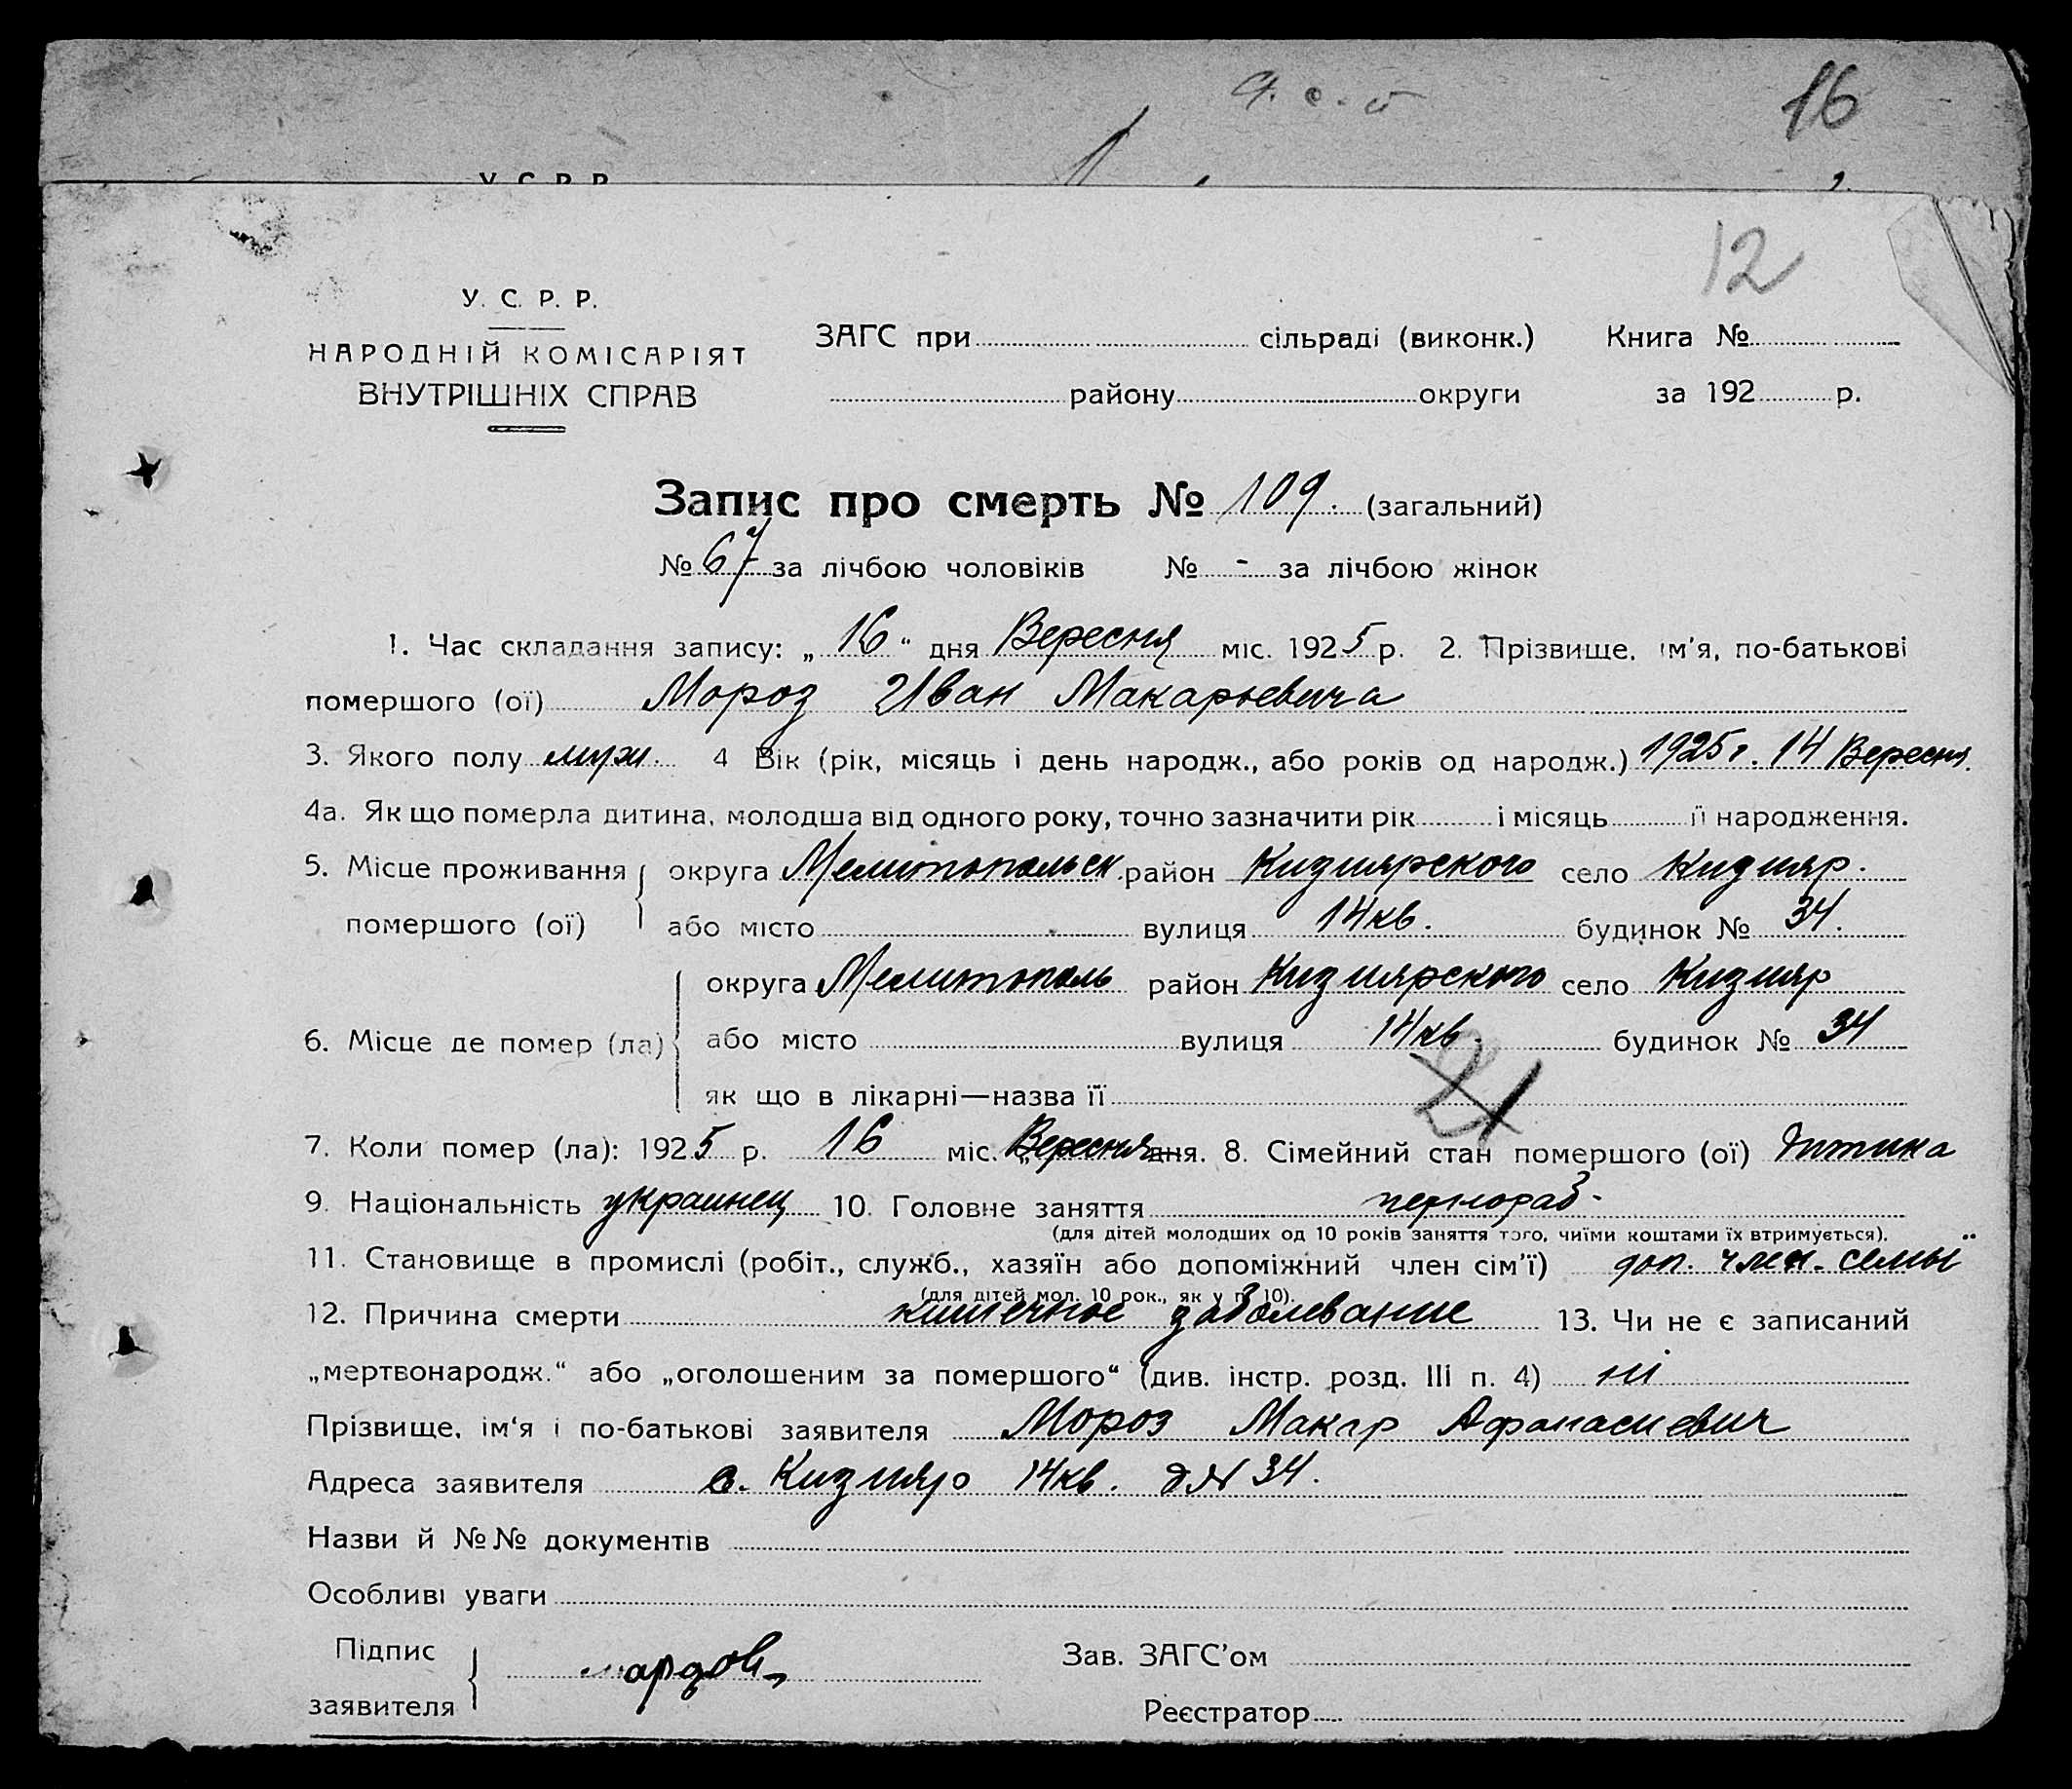 16
У. С. Р. Р.
12
У. С. Р. Р.
НАРОДНІЙ КОМІСАРІЯТ
ВНУТРІШНІХ СПРАВ
ЗАГС при сільраді (виконк.) Книга №
району округи за 192 р.
Запис про смерть № 109. (загальний)
№ 67 за лічбою чоловіків № - за лічбою жінок
1. Час складання запису: „16“ дня Вересня міс. 1925 р. 2. Прізвище, ім'я, по-батькові
помершого (ої) Мороз Иван Макарьевича
3. Якого полу муж. 4 Вік (рік, місяць і день народж., або років од народж.) 1925 г. 14 Вересня.
4а. Як що померла дитина, молодша від одного року, точно зазначити рік і місяць її народження.
5. Місце проживання округа Мелитопольск. район Кизиярского село Кизияр.
помершого (ої) або місто вулиця 14 кв. будинок № 34.
округа Мелитополь район Кизиярского село Кизияр
6. Місце де помер (ла) або місто вулиця 14 кв будинок № 34
як що в лікарні—назва її 21
7. Коли помер (ла): 1925 р. 16 міс. „Вересня дня. 8. Сімейний стан помершого (ої) дитина
9. Національність украинец 10. Головне заняття чернораб.
(для дітей молодших од 10 років заняття того, чиїми коштами їх втримується).
11. Становище в промислі (робіт., служб., хазяїн або допоміжний член сім'ї) доп. член. семьи
(для дітей мол. 10 рок., як у п. 10).
12. Причина смерти кишечное заболевание 13. Чи не є записаний
„мертвонародж.“ або „оголошеним за помершого“ (див. інстр. розд. III п. 4) ні
Прізвище, ім'я і по-батькові заявителя Мороз Макар Афанасиевич
Адреса заявителя с. Кизияр 14 кв. д. № 34.
Назви й №№ документів
Особливі уваги
Підпис
заявителя
Зав. ЗАГС'ом
Реєстратор